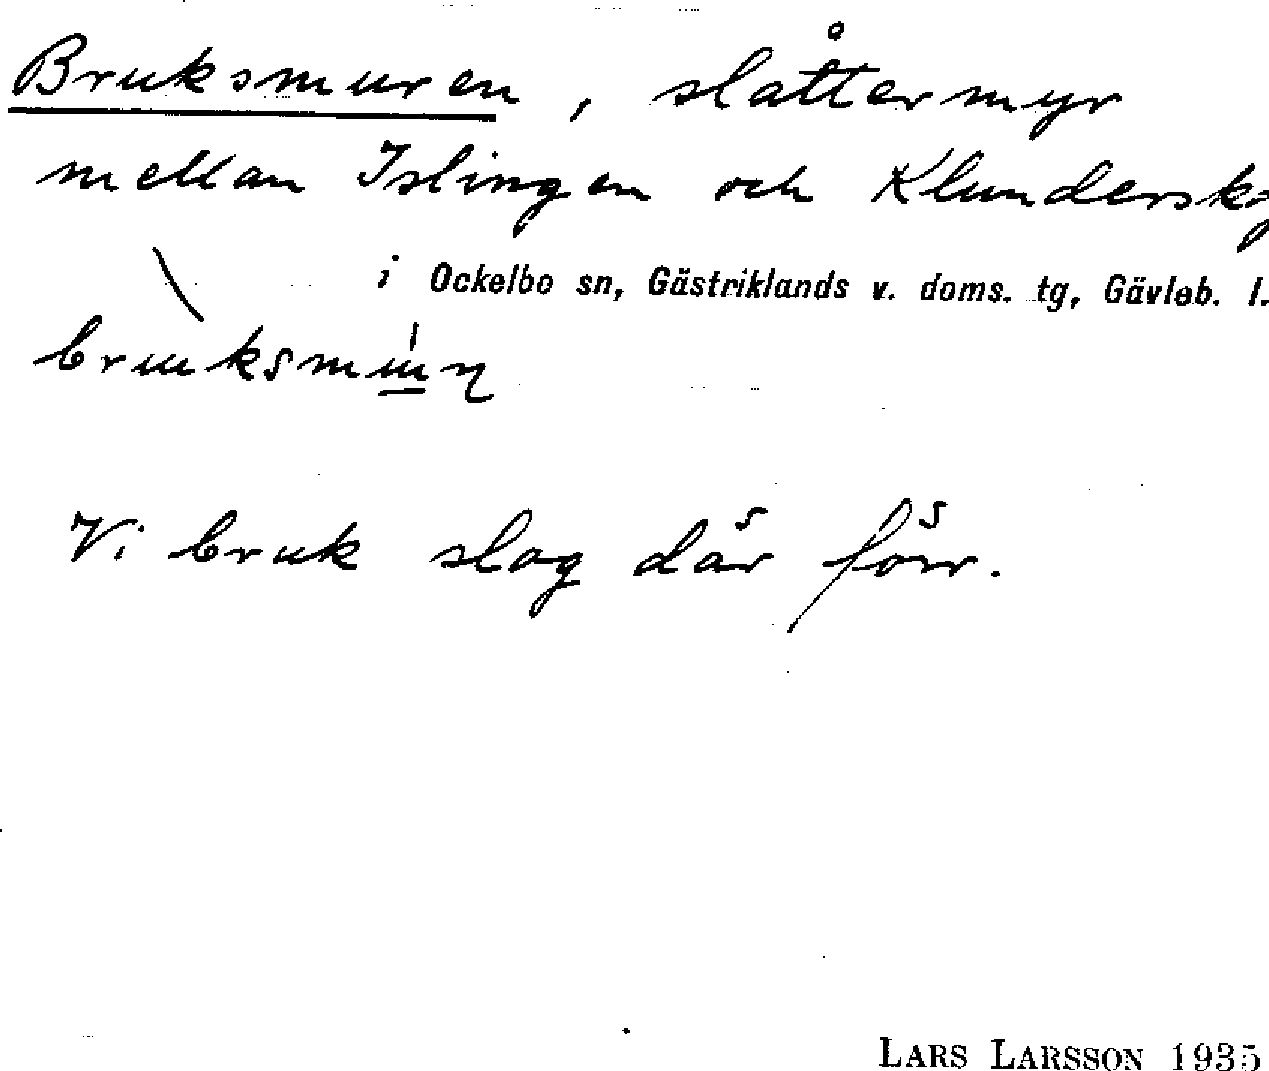 Bruksmuren, slåttermyr
mellan Islingen och
i Ockelbo sn, Gästriklands v. doms. tg, Gävleb. l.
Vi bruk slog där förr.
LARS LARSSON 1935